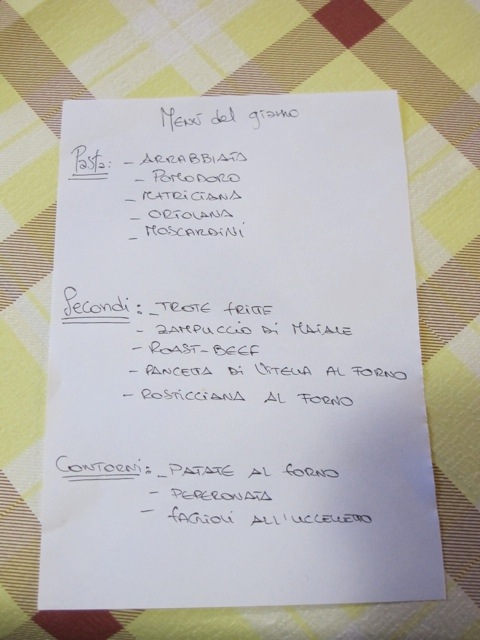 Menù del giorno
Pasta: - ARRABBIATA
- POMODORO
- MATRICIANA
- ORTOLANA
- MOSCARDINI
Secondi: - TROTE FRITTE
- ZAMPUCCIO DI MAIALE
- ROAST-BEEF
- PANCETTA DI VITELLA AL FORNO
- ROSTICCIANA AL FORNO
CONTORNI: - PATATE AL FORNO
- PEPERONATA
- FAGIOLI ALL'UCCELLETTO